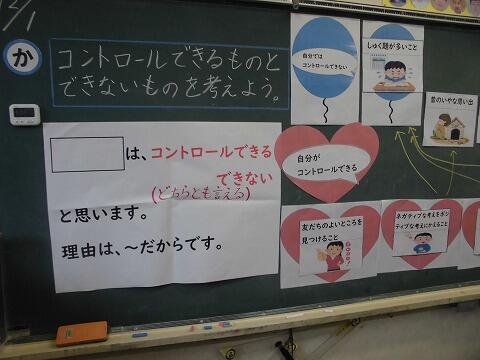 12/1
か
コントロールできるものと
できないものを考えよう。
は、コントロールできる
できない
(どちらとも言える)
と思います。
理由は、～だからです。
自分では
コントロールできない
しゅく題が多いこと
昔のいやな思い出
自分が
コントロールできる
友だちのよいところを
見つけること
ネガティブな考えをポジ
ティブな考えにかえること